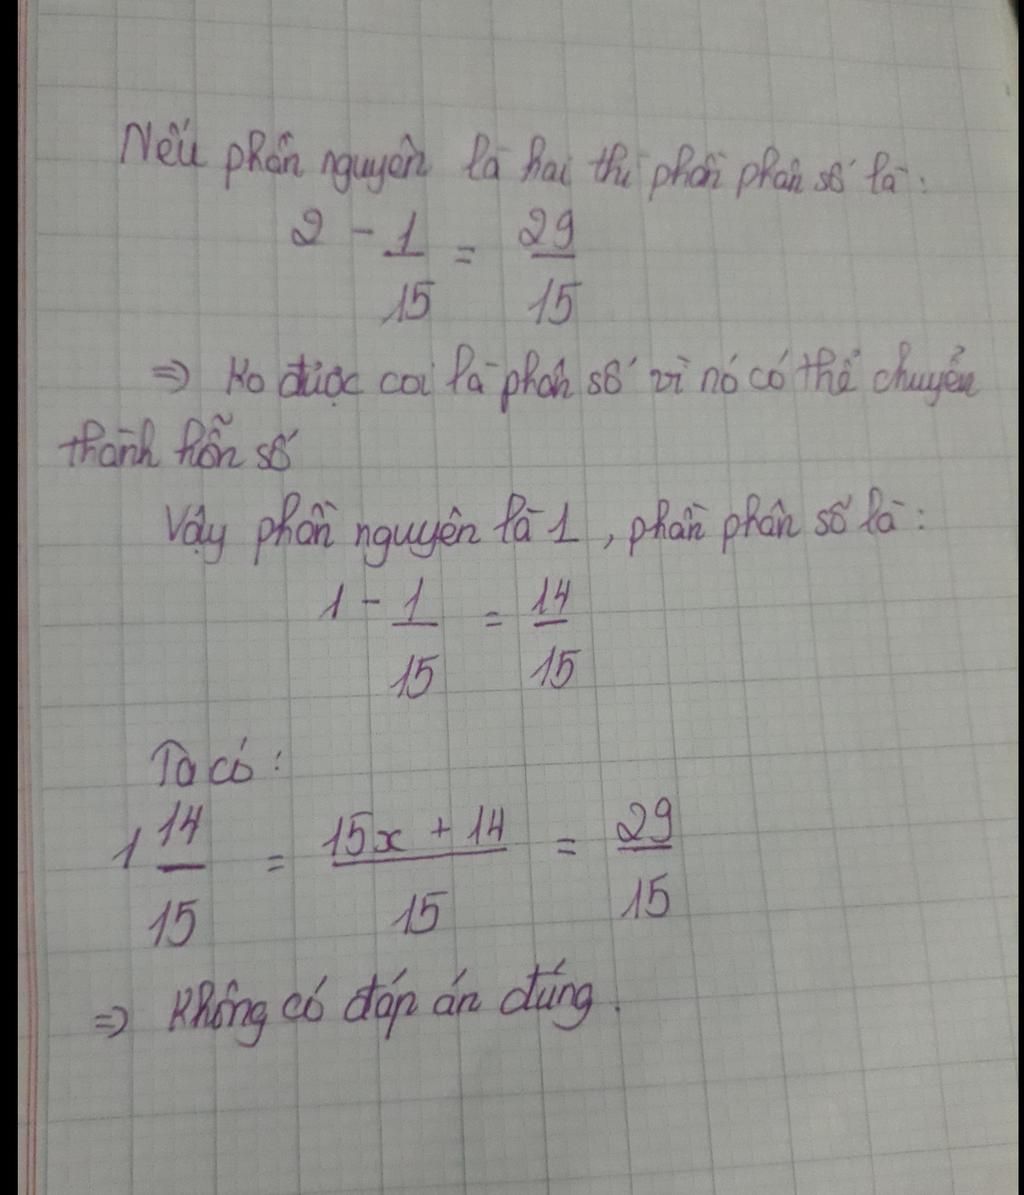 Nếu phần nguyên là hai thì phần phân số là:
2 - 1/15 = 29/15
=> Ko được coi là phân số vì nó có thể chuyển
thành hỗn số
Vậy phần nguyên là 1, phần phân số là:
1 - 1/15 = 14/15
Ta có:
1 14/15 = 15x + 14/15 = 29/15
=> Không có đáp án đúng.